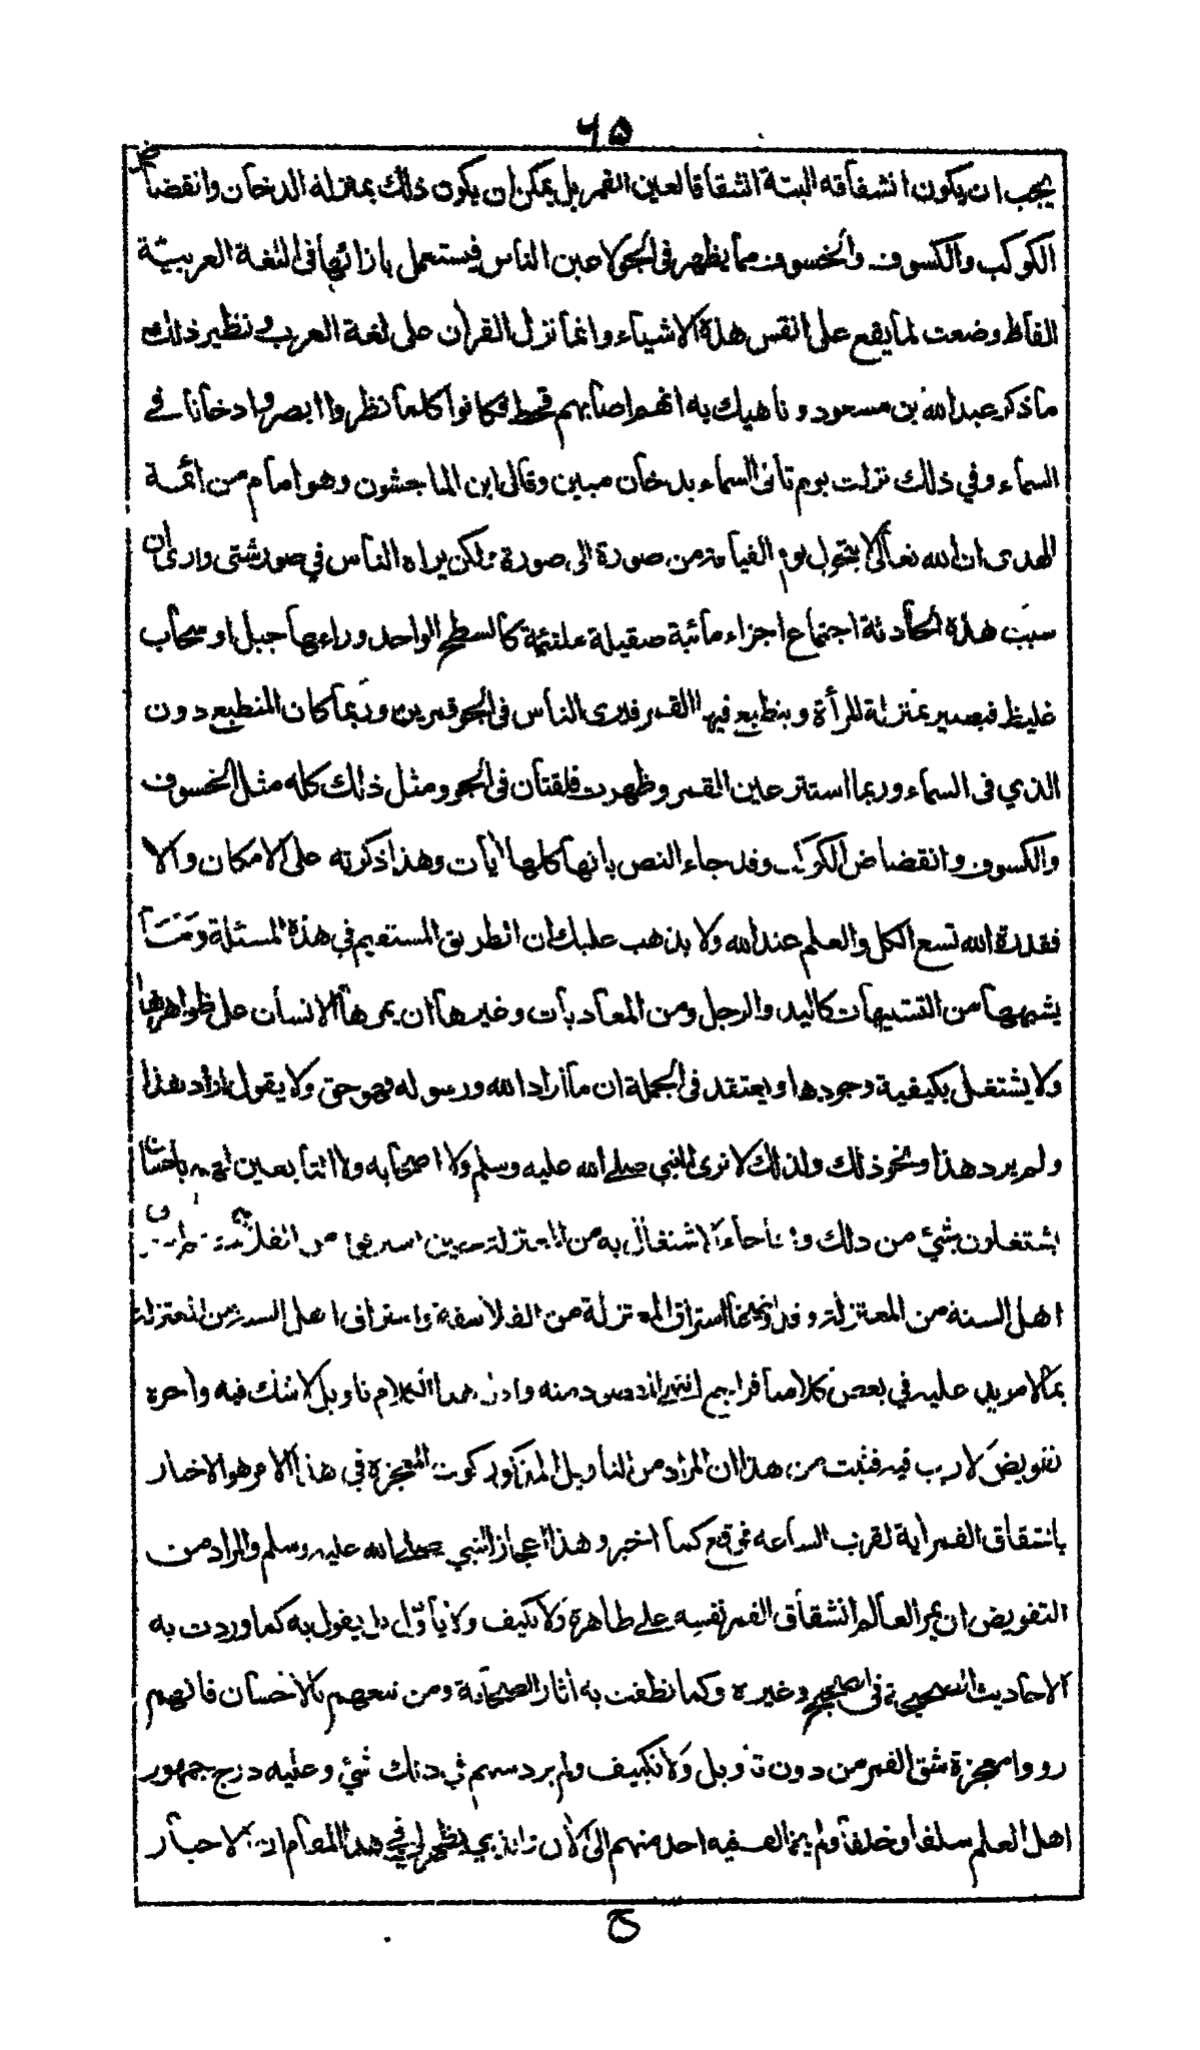 ٦٥
يجب ان يكون انشقاقه البتة انشقاقا لعين القمر بل يمكن ان يكون ذلك بمنزلة الدخان وانقضاض
الكوكب والكسوف والخسوف مما يظهر في الجو لاعين الناس فيستعمل بازائها في اللغة العربيّة
الفاظ وضعت لما يقع على انفس هذة الاشياء وانما نزل القران على لغة العرب ونظير ذلك
ما ذكر عبد الله بن مسعود وناهيك به انهم اصابهم قحط فكانوا كلما نظروا ابصروا دخانا في
السماء وفي ذلك نزلت يوم تاتى السماء بدخان مبين وقال ابن الماجشون وهو امام من ائمة
الهدى ان الله تعالى لا يتحول يوم القيامة من صورة الى صورة ولكن يراه الناس في صور شتى وارى ان
سبب هذة الحادثة اجتماع اجزاء مائية صقيلة ملتئمة كالسطح الواحد وراءها جبل او سحاب
غليظ فيصير بمنزلة المرأة وينطبع فيها القمر فيرى الناس في الجو قمرين وربما كان المنطبع دون
الذي في السماء وربما استتر عين القمر وظهرت فلقتان في الجو ومثل ذلك كله مثل الخسوف
والكسوف وانقضاض الكواكب وقد جاء النص بانها كلها ايات وهذا ذكرته على الامكان والا
فقدرة الله تسع الكل والعلم عند الله ولا يذهب عليك ان الطريق المستقيم في هذة المسئلة وما
يشبهها من التشبيهات كاليد والرجل ومن المعاديات وغيرها ان يمرها الانسان على ظواهرها
ولا يشتغل بكيفية وجودها ويعتقد في الجملة ان ما اراد الله ورسوله فهو حق ولا يقول اراد هذا
ولم يرد هذا ونحو ذلك ولذلك لا نرى النبي صلى الله عليه وسلم ولا اصحابه ولا التابعين لهم باحسان
يشتغلون بشئ من ذلك وانما جاء الاشتغال به من المعتزلة حين استرقوا من الفلاسفة
اهل السنة من المعتزلة وقد اوضحنا استراق المعتزلة من الفلاسفة واستراق اهل السنة من المعتزلة
بما لا مزيد عليه في بعض كلامنا فراجع اليه ان اول هذا الكلام تاويل لا شك فيه واخره
تفويض لا ريب فيه فثبت من هذا ان المراد من التأويل المذكور كون المعجزة في هذا الامر هو الاخبار
بانشقاق القمر اية لقرب الساعة فوقع كما اخبر وهذا اعجاز النبي صلى الله عليه وسلم والمراد من
التفويض ان يمر العالم انشقاق القمر نفسه على ظاهرة ولا يكيف ولا يأوّل بل يقول به كما وردت به
الاحاديث الصحيحة في الصحيح وغيره وكما نطقت به اثار الصحابة ومن تبعهم بالاحسان فانهم
رووا معجزة شق القمر من دون تاويل ولا تكييف ولم يرد منهم في ذلك شئ وعليه درج جمهور
اهل العلم سلفا وخلفا ولم يخالف فيه احد منهم الى الأن والذي يظهر لي في هذا المقام ان الاخبار
ح